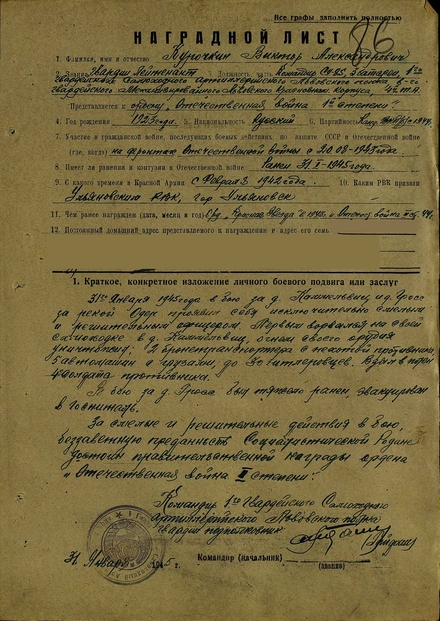 Все графы заполнить полностью
86
НАГРАДНОЙ ЛИСТ
1. Фамилия, имя и отчество Курочкин Виктор Александрович
2. Звание Гвардии Лейтенант 3. Должность, часть Командир СУ-85, Батареи, 1го
гвардейского Самоходного артиллерийского Львовского полка 6-го
гвардейского Механизированного Львовского Краснознам. Корпуса, 4й Т.А.
Представляется к ордену "Отечественная война 1й степени"
4. Год рождения 1923 года. 5. Национальность Русский 6. Партийность
7. Участие в гражданской войне, последующих боевых действиях по защите СССР и Отечественной войне
(где, когда) на фронтах Отечественной войны с 20.08-1943 года
8. Имеет ли ранения и контузии в Отечественной войне Ранен 31.I-1945 года.
9. С какого времени в Красной Армии с Февраля 1942 года. 10. Каким РВК призван
Ульяновским РВК, гор. Ульяновск
11. Чем ранее награжден (дата, месяц и год) Орд. Красная Звезда в 1945 г. и Отечеств. война II ст.
12. Постоянный домашний адрес представляемого к награждению и адрес его семьи
1. Краткое, конкретное изложение личного боевого подвига или заслуг
31го Января 1945 года в бою за д. и д. Гросс
за рекой Одер проявил себя исключительно смелым
и решительным офицером. Первым ворвался на своей
самоходке в д. огнем своего орудия
уничтожил: 2 бронетранспортера с пехотой противника,
5 автомашин с грузами и до 30 гитлеровцев. Взял в плен
4 солдата противника.
В бою за д. Гросс был тяжело ранен, эвакуирован
в госпиталь.
За смелые и решительные действия в бою,
беззаветную преданность Социалистической Родине
удостоин правительственной награды ордена
"Отечественная война II степени".
Командир 1го Гвардейского Самоходного
Артиллерийского Львовского полка
Гвардии подполковник
31 Января 1945 г. Командир (начальник)
(звание)